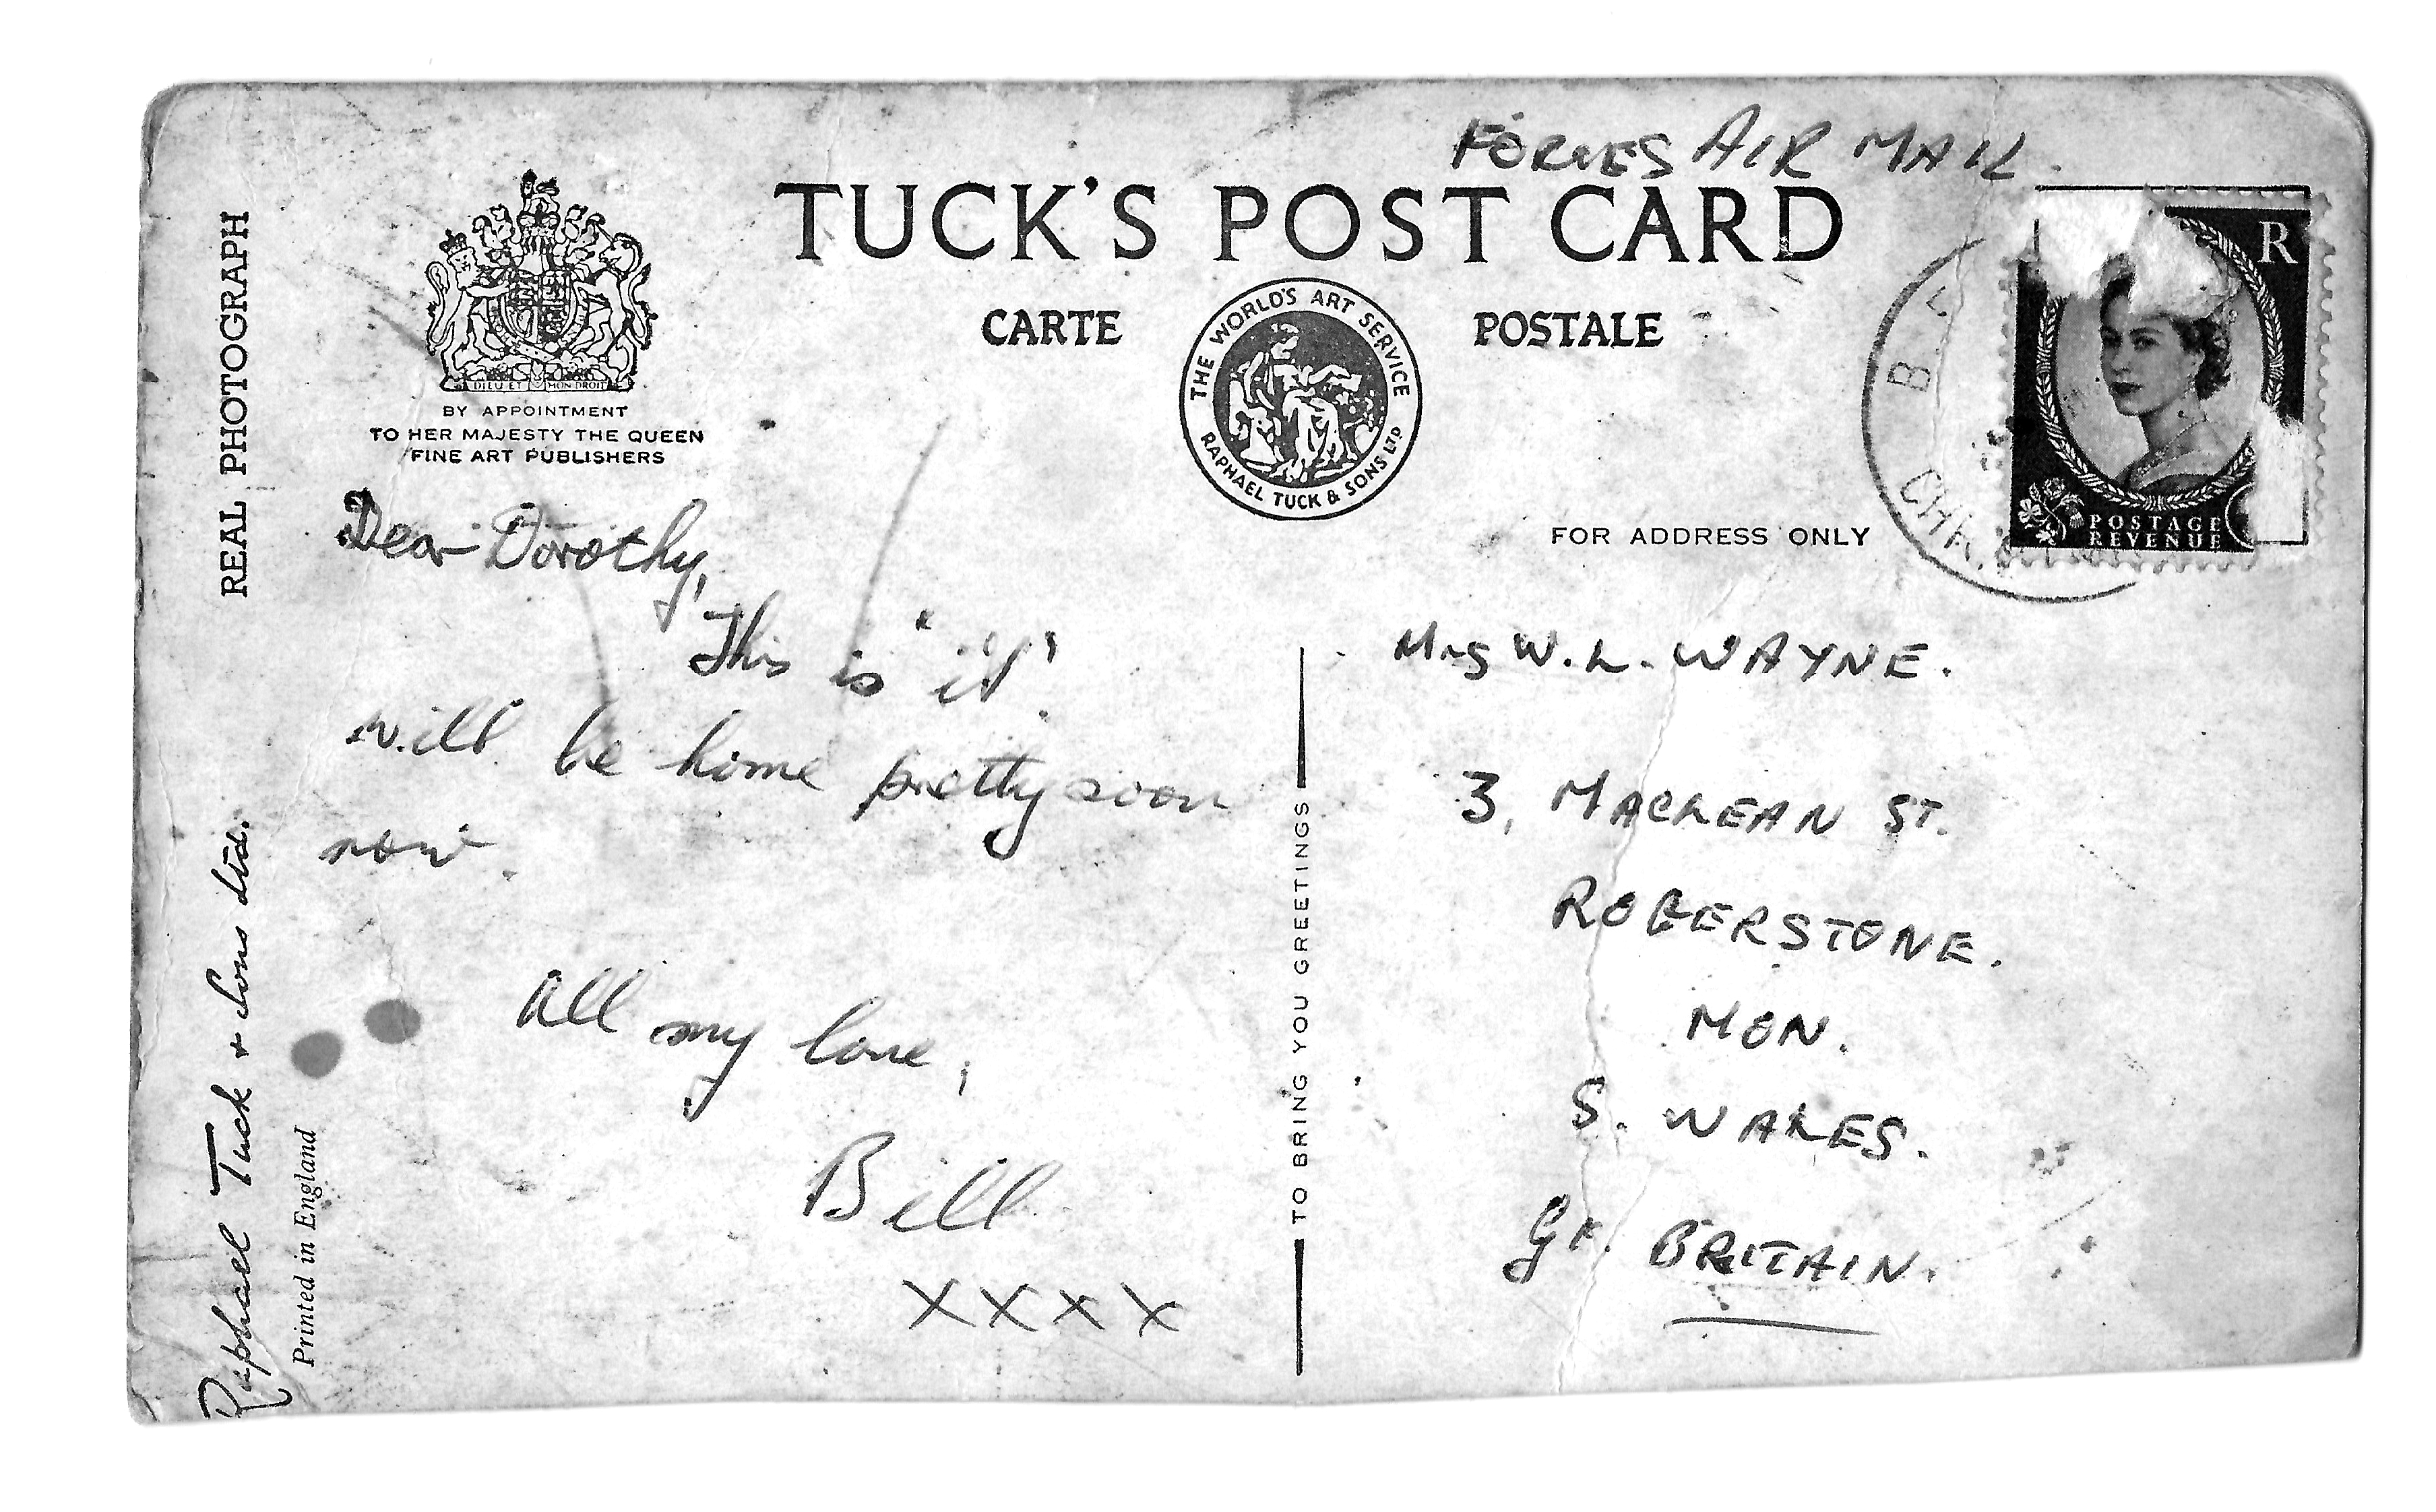 FORCES AIR MAIL.
TUCK'S POST CARD
CARTE POSTALE
THE WORLD'S ART SERVICE
RAPHAEL TUCK & SONS LTD
DIEU ET MON DROIT
BY APPOINTMENT
TO HER MAJESTY THE QUEEN
FINE ART PUBLISHERS
REAL PHOTOGRAPH
Raphael Tuck & Sons Ltd.
Printed in England
R
POSTAGE
REVENUE
FOR ADDRESS ONLY
Dear Dorothy,
This is 'it'.
will be home pretty soon
now.
All my love,
Bill
XXXX
TO BRING YOU GREETINGS
Mrs W.L. WAYNE.
3, MACLEAN ST.
ROGERSTONE.
MON.
S. WALES.
Gt. BRITAIN.